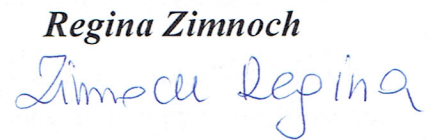 Regina Zimnoch
Zimnoch Regina